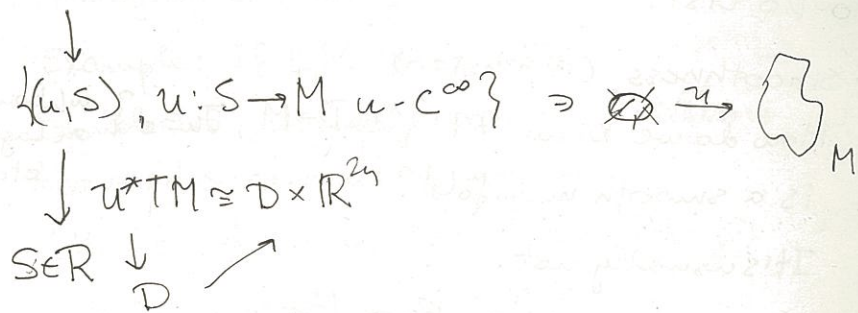 {(u,S), u: S → M u - C^∞} ⇒ u → M
↓ u*TM ≅ D × ℝ^{2n}
S ∈ R ↓
D